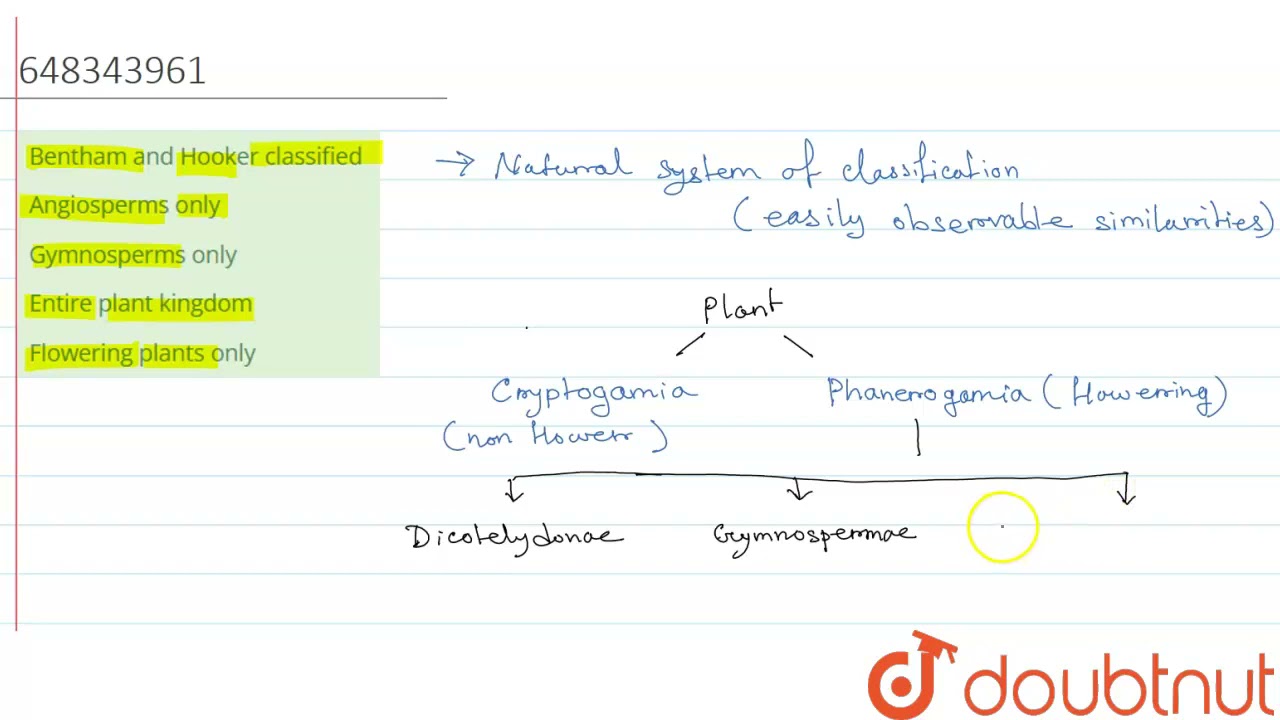 648343961
Bentham and Hooker classified
Angiosperms only
Gymnosperms only
Entire plant kingdom
Flowering plants only
→ Natural system of classification
(easily observable similarities)
Plant
Cryptogamia
(non flower)
Phanerogamia (flowering)
Dicotelydonae
Gymnospermae
doubtnut